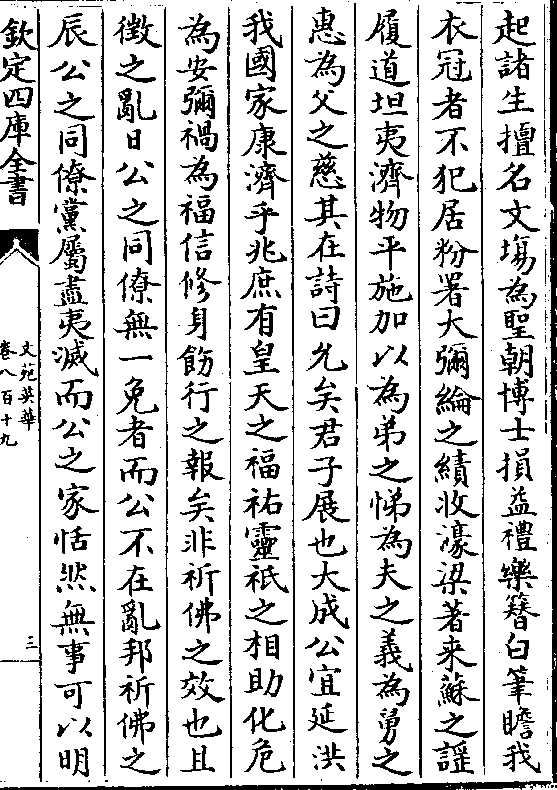 起諸生擅名文塲為聖朝博士損益禮樂簪白筆瞻我
衣冠者不犯居粉署大彌綸之績收濠梁著来蘇之謡
履道坦夷濟物平施加以為弟之悌為夫之義為舅之
惠為父之慈其在詩曰允矣君子展也大成公宜延洪
我國家康濟乎兆庶有皇天之福祐靈祇之相助化危
為安彌禍為福信修身飭行之報矣非祈佛之效也且
徴之亂日公之同僚無一免者而公不在亂邦祈佛之
辰公之同僚黨屬盡夷滅而公之家恬然無事可以明
欽定四庫全書
文苑英華
卷八百十九
三